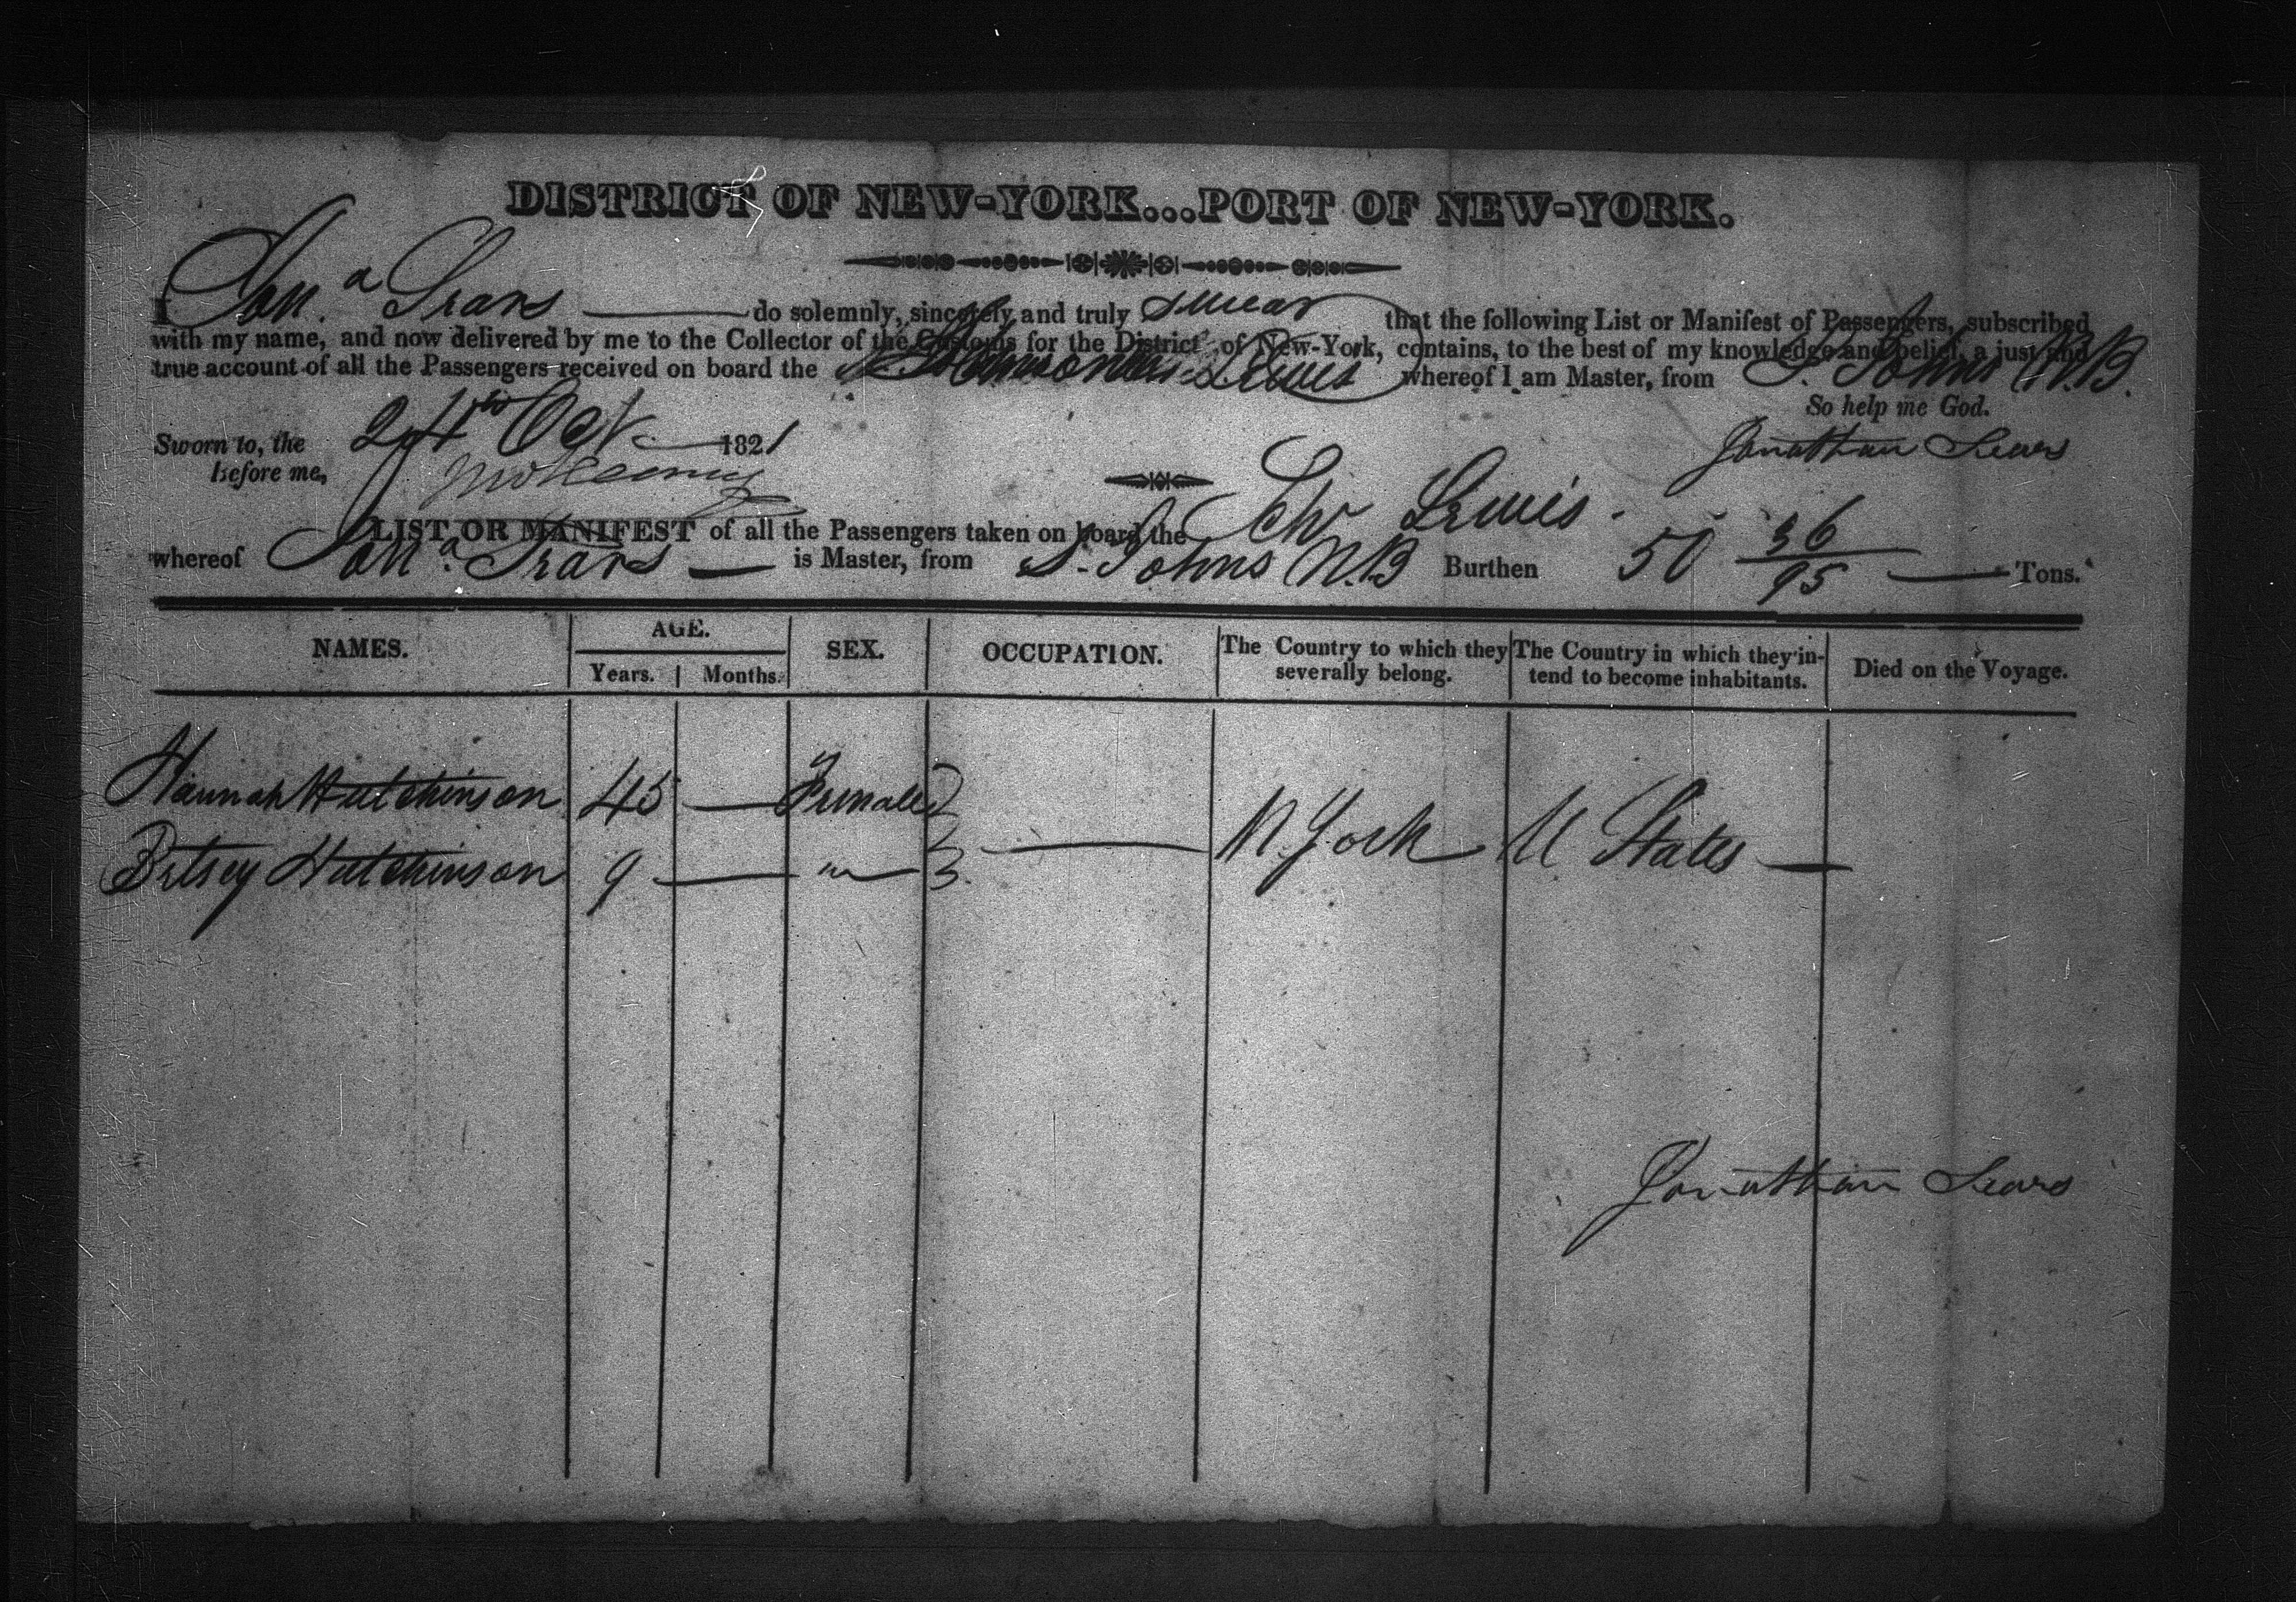 DISTRICT OF NEW-YORK...PORT OF NEW-YORK.
I Jon.a Sears do solemnly, sincerely and truly swear that the following List or Manifest of Passengers, subscribed
with my name, and now delivered by me to the Collector of the Customs for the District of New-York, contains, to the best of my knowledge and belief, a just and
true account of all the Passengers received on board the Lewis whereof I am Master, from S. Johns N.B.
So help me God.
Sworn to, the 24th Oct 1821 Jonathan Sears
before me,
LIST OR MANIFEST of all the Passengers taken on board the Schr Lewis.
whereof Jon.a Sears is Master, from S. Johns N.B Burthen 50 36/95 Tons.
NAMES. AGE. SEX. OCCUPATION. The Country to which they severally belong. The Country in which they in-tend to become inhabitants. Died on the Voyage.
Years. Months.
Hannah Hutchinson 45 — Female
N. York U States —
Betsey Hutchinson 9 — " —
Jonathan Sears